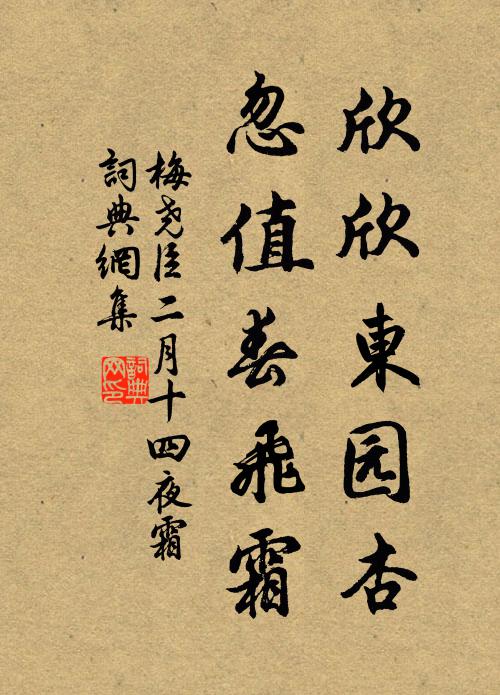 欣欣東园杏
忽值春飛霜
梅堯臣二月十四夜霜
詞典網集
詞典網印